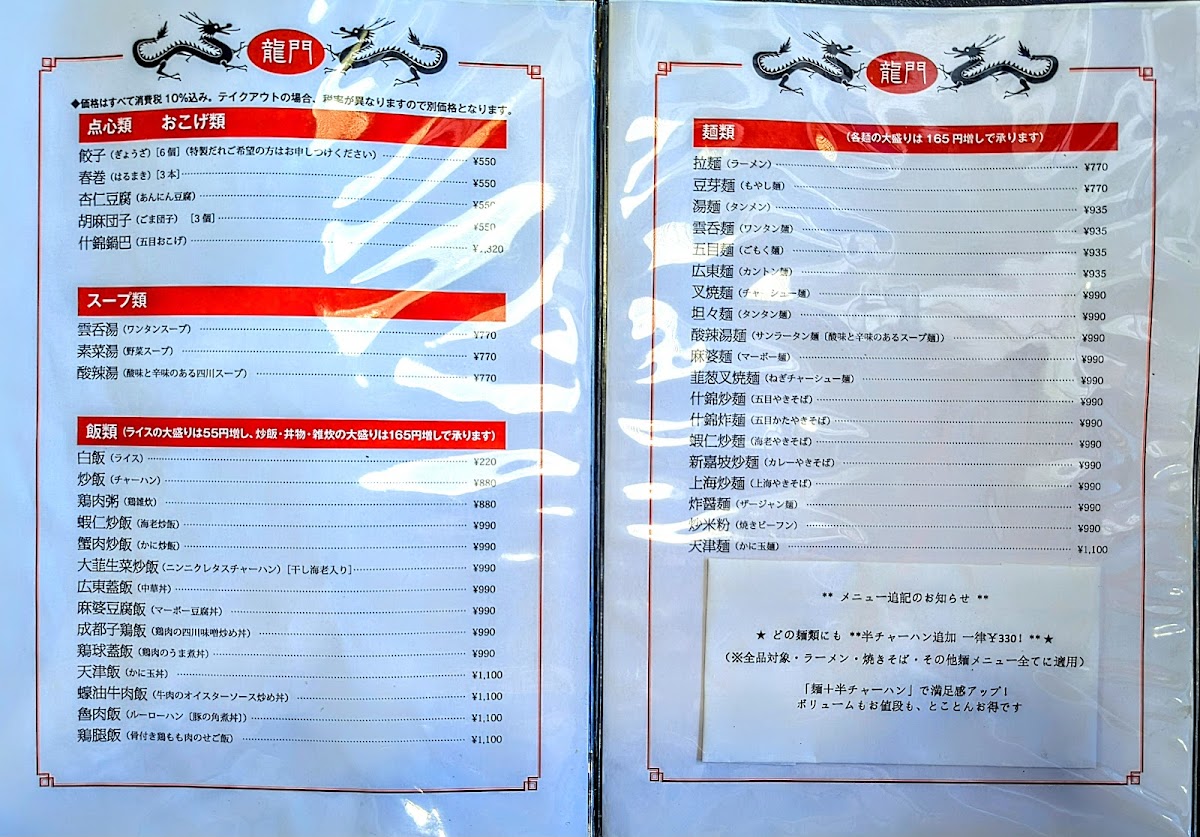 龍門
◆価格はすべて消費税10%込み。テイクアウトの場合、税率が異なりますので別価格となります。
点心類 おこげ類
餃子(ぎょうざ)[6個](特製だれご希望の方はお申しつけください) ¥550
春巻(はるまき)[3本] ¥550
杏仁豆腐(あんにん豆腐) ¥550
胡麻団子(ごま団子) [3個] ¥550
什錦鍋巴(五目おこげ) ¥1,320
スープ類
雲呑湯(ワンタンスープ) ¥770
素菜湯(野菜スープ) ¥770
酸辣湯(酸味と辛味のある四川スープ) ¥770
飯類(ライスの大盛りは55円増し、炒飯・丼物・雑炊の大盛りは165円増しで承ります)
白飯(ライス) ¥220
炒飯(チャーハン) ¥880
鶏肉粥(鶏雑炊) ¥880
蝦仁炒飯(海老炒飯) ¥990
蟹肉炒飯(かに炒飯) ¥990
大韮生菜炒飯(ニンニクレタスチャーハン)[干し海老入り] ¥990
広東蓋飯(中華丼) ¥990
麻婆豆腐飯(マーボー豆腐丼) ¥990
成都子鶏飯(鶏肉の四川味噌炒め丼) ¥990
鶏球蓋飯(鶏肉のうま煮丼) ¥990
天津飯(かに玉丼) ¥1,100
蠔油牛肉飯(牛肉のオイスターソース炒め丼) ¥1,100
魯肉飯(ルーローハン[豚の角煮丼]) ¥1,100
鶏腿飯(骨付き鶏もも肉のせご飯) ¥1,100
龍門
麺類 (各麺の大盛りは165円増しで承ります)
拉麺(ラーメン) ¥770
豆芽麺(もやし麺) ¥770
湯麺(タンメン) ¥935
雲呑麺(ワンタン麺) ¥935
五目麺(ごもく麺) ¥935
広東麺(カントン麺) ¥935
叉焼麺(チャーシュー麺) ¥990
坦々麺(タンタン麺) ¥990
酸辣湯麺(サンラータン麺[酸味と辛味のあるスープ麺]) ¥990
麻婆麺(マーボー麺) ¥990
韮葱叉焼麺(ねぎチャーシュー麺) ¥990
什錦炒麺(五目やきそば) ¥990
什錦炸麺(五目かたやきそば) ¥990
蝦仁炒麺(海老やきそば) ¥990
新嘉坡炒麺(カレーやきそば) ¥990
上海炒麺(上海やきそば) ¥990
炸醤麺(ザージャン麺) ¥990
炒米粉(焼きビーフン) ¥990
天津麺(かに玉麺) ¥1,100
** メニュー追記のお知らせ **
★ どの麺類にも **半チャーハン追加 一律¥330! **★
(※全品対象・ラーメン・焼きそば・その他麺メニュー全てに適用)
「麺+半チャーハン」で満足感アップ!
ボリュームもお値段も、とことんお得です